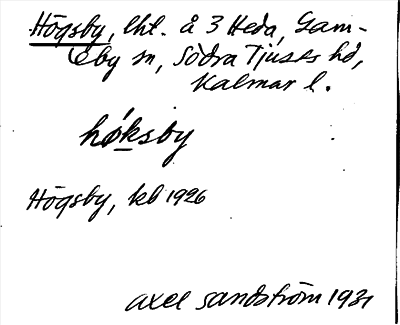 Högsby, lht. å 3 Heda, Gam-
leby sn, Södra Tjusts hd,
Kalmar l.
hǿksby
Högsby, kb 1926
Axel Sandström 1931